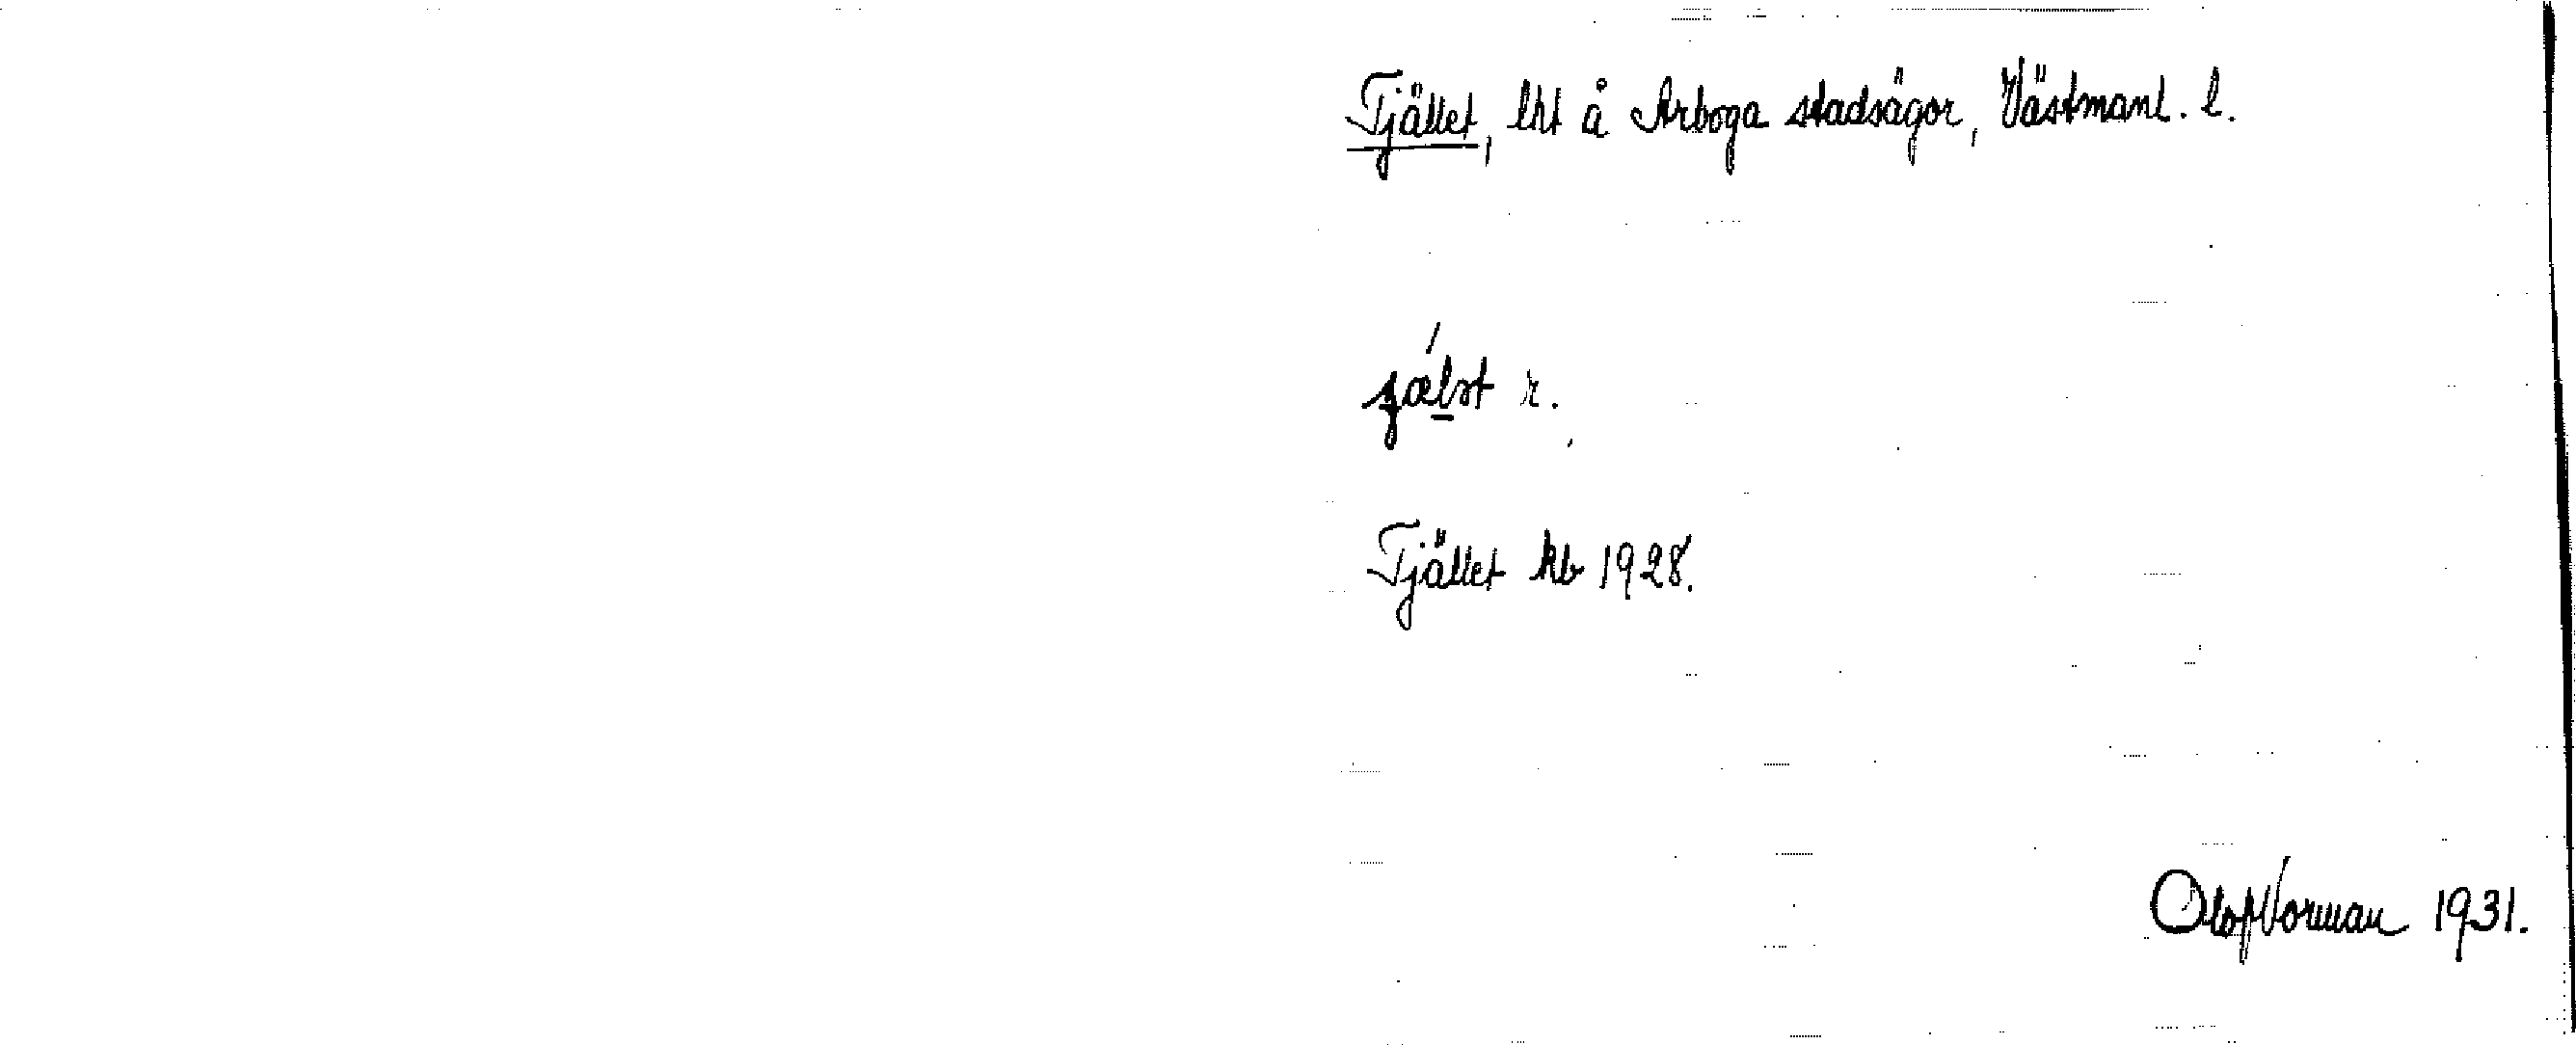 Tjället, lht å Arboga stadsägor, Västmanl. l.
Tjället kb 1928.
Olof Norman 1931.